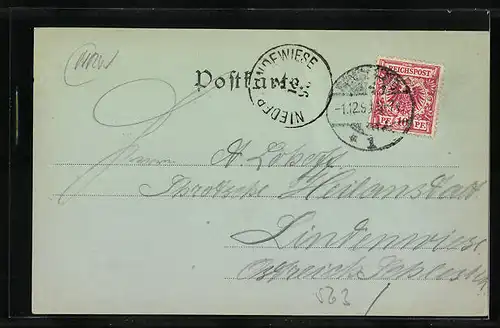 Postkarte
NIEDER LINDEWIESE
REICHSPOST
10 PF 10 PF
-1.12.9
* 1
Herrn A.
Schrothsche Heilanstalt
Lindenwiese
Österreich Schlesien
563